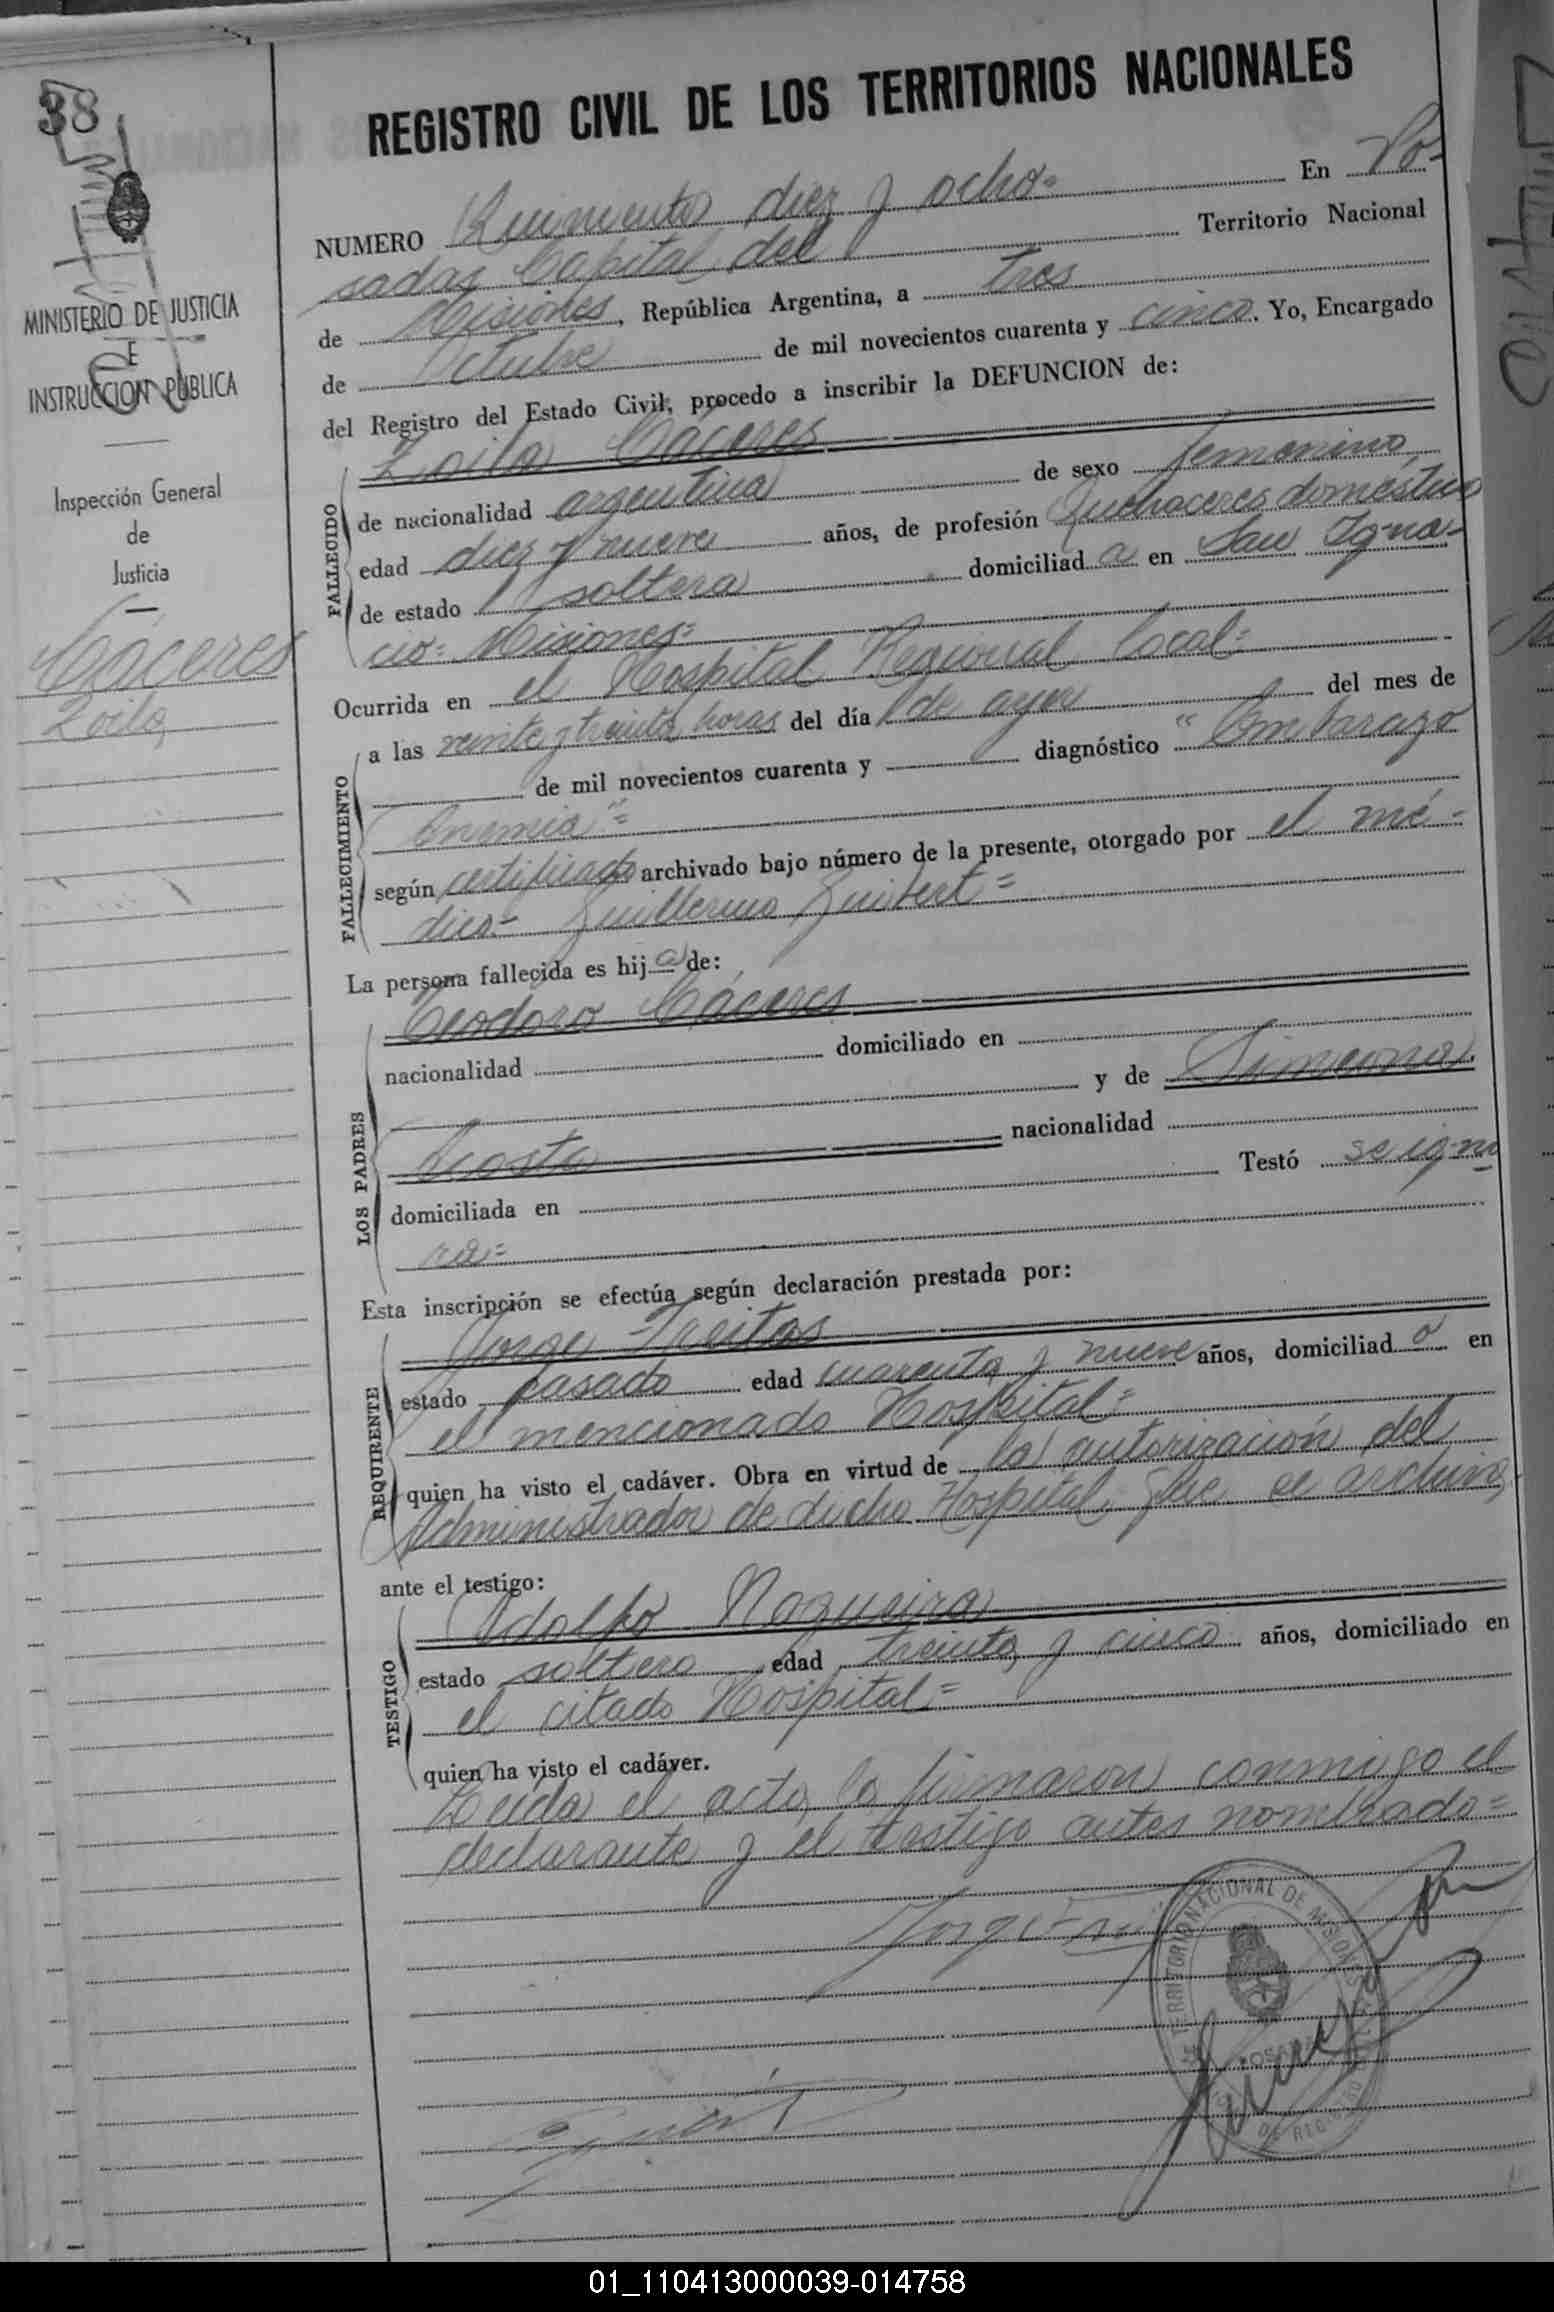 38
MINISTERIO DE JUSTICIA
E
INSTRUCCION PUBLICA
Inspección General
de
Justicia
Cáceres
Zoila
REGISTRO CIVIL DE LOS TERRITORIOS NACIONALES
NUMERO Quinientos diez y ocho= En Po-
sadas Capital del Territorio Nacional
de Misiones, República Argentina, a tres
de Octubre de mil novecientos cuarenta y cinco. Yo, Encargado
del Registro del Estado Civil, procedo a inscribir la DEFUNCION de:
FALLECIDO
Zoila Cáceres
de nacionalidad argentina de sexo femenino,
edad diez y nueve años, de profesión Quehaceres domésticos
de estado soltera domiciliad a en San Igna-
cio= Misiones=
Ocurrida en el Hospital Regional local=
FALLECIMIENTO
a las veinte y treinta horas del día de ayer del mes de
de mil novecientos cuarenta y diagnóstico "Embarazo
Anemia"=
según certificado archivado bajo número de la presente, otorgado por el mé-
dico= Guillermo
La persona fallecida es hij a de:
LOS PADRES
Teodoro Cáceres
nacionalidad domiciliado en
y de Simeona
Acosta nacionalidad
domiciliada en Testó se igno
ra=
Esta inscripción se efectúa según declaración prestada por:
REQUIRENTE
Jorge Freitas
estado casado edad cuarenta y nueve años, domiciliad o en
el mencionado Hospital=
quien ha visto el cadáver. Obra en virtud de la autorización del
Administrador de dicho Hospital, que se archiva,
ante el testigo:
TESTIGO
Adolfo Nogueira
estado soltero edad treinta y cinco años, domiciliado en
el citado Hospital=
quien ha visto el cadáver.
Leída el acta, la firmaron conmigo el
declarante y el testigo antes nombrado=
Jorge
TERRITORIO NACIONAL DE MISIONES
POSADAS
01_110413000039-014758